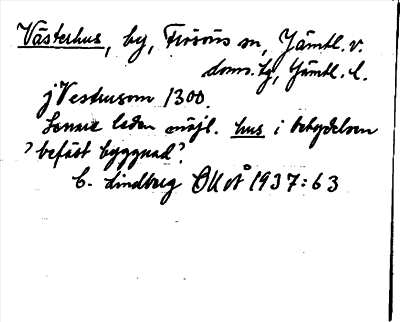 Västerhus, by, Frösöns sn, Jämtl. v.
doms. tg, Jämtl. l.
j Vesthusom 1300.
Senare leden möjl. hus i betydelsen
'befäst byggnad'.
C. Lindberg ÖUÅ 1937:63